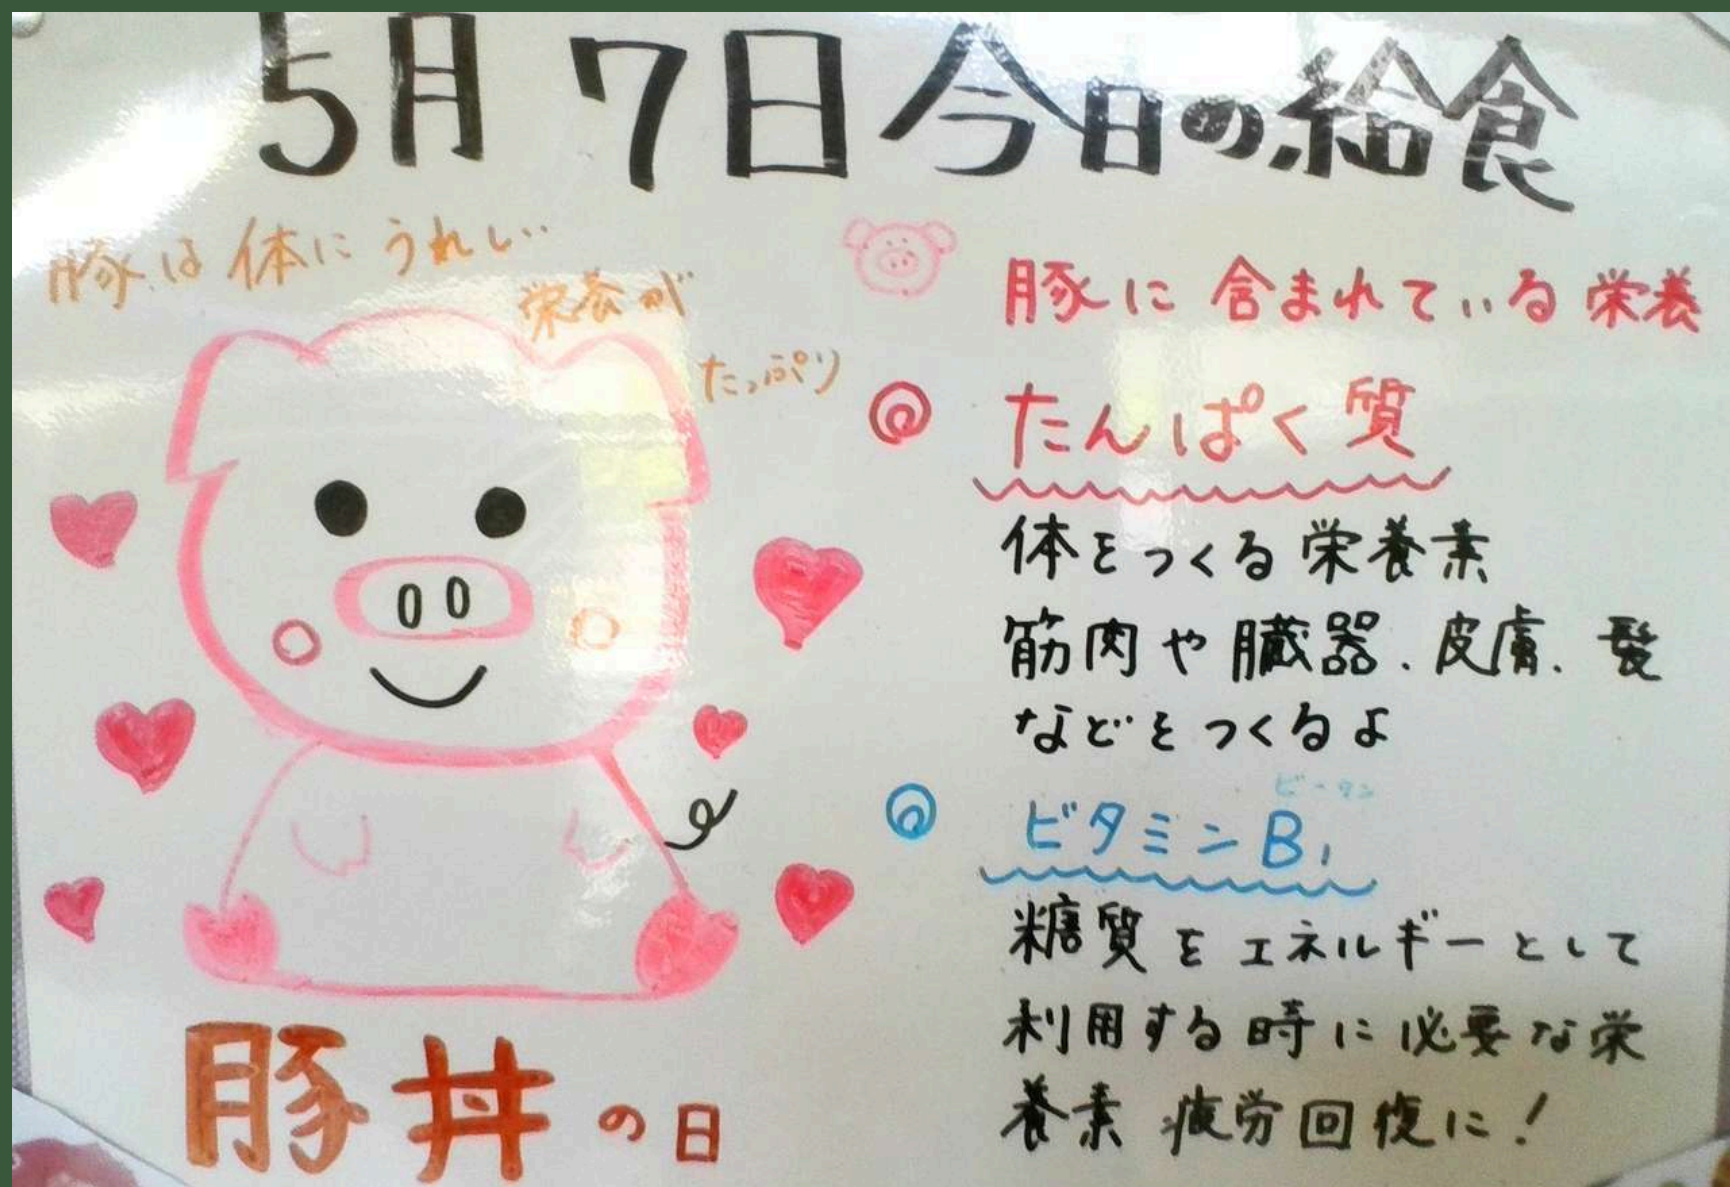 5月7日今日の給食
豚は体にうれしい
栄養が
たっぷり
豚に含まれている栄養
たんぱく質
体をつくる栄養素
筋肉や臓器、皮膚、髪
などをつくるよ
ビータン
ビタミンB1
糖質をエネルギーとして
利用する時に必要な栄
養素 疲労回復に!
豚丼の日